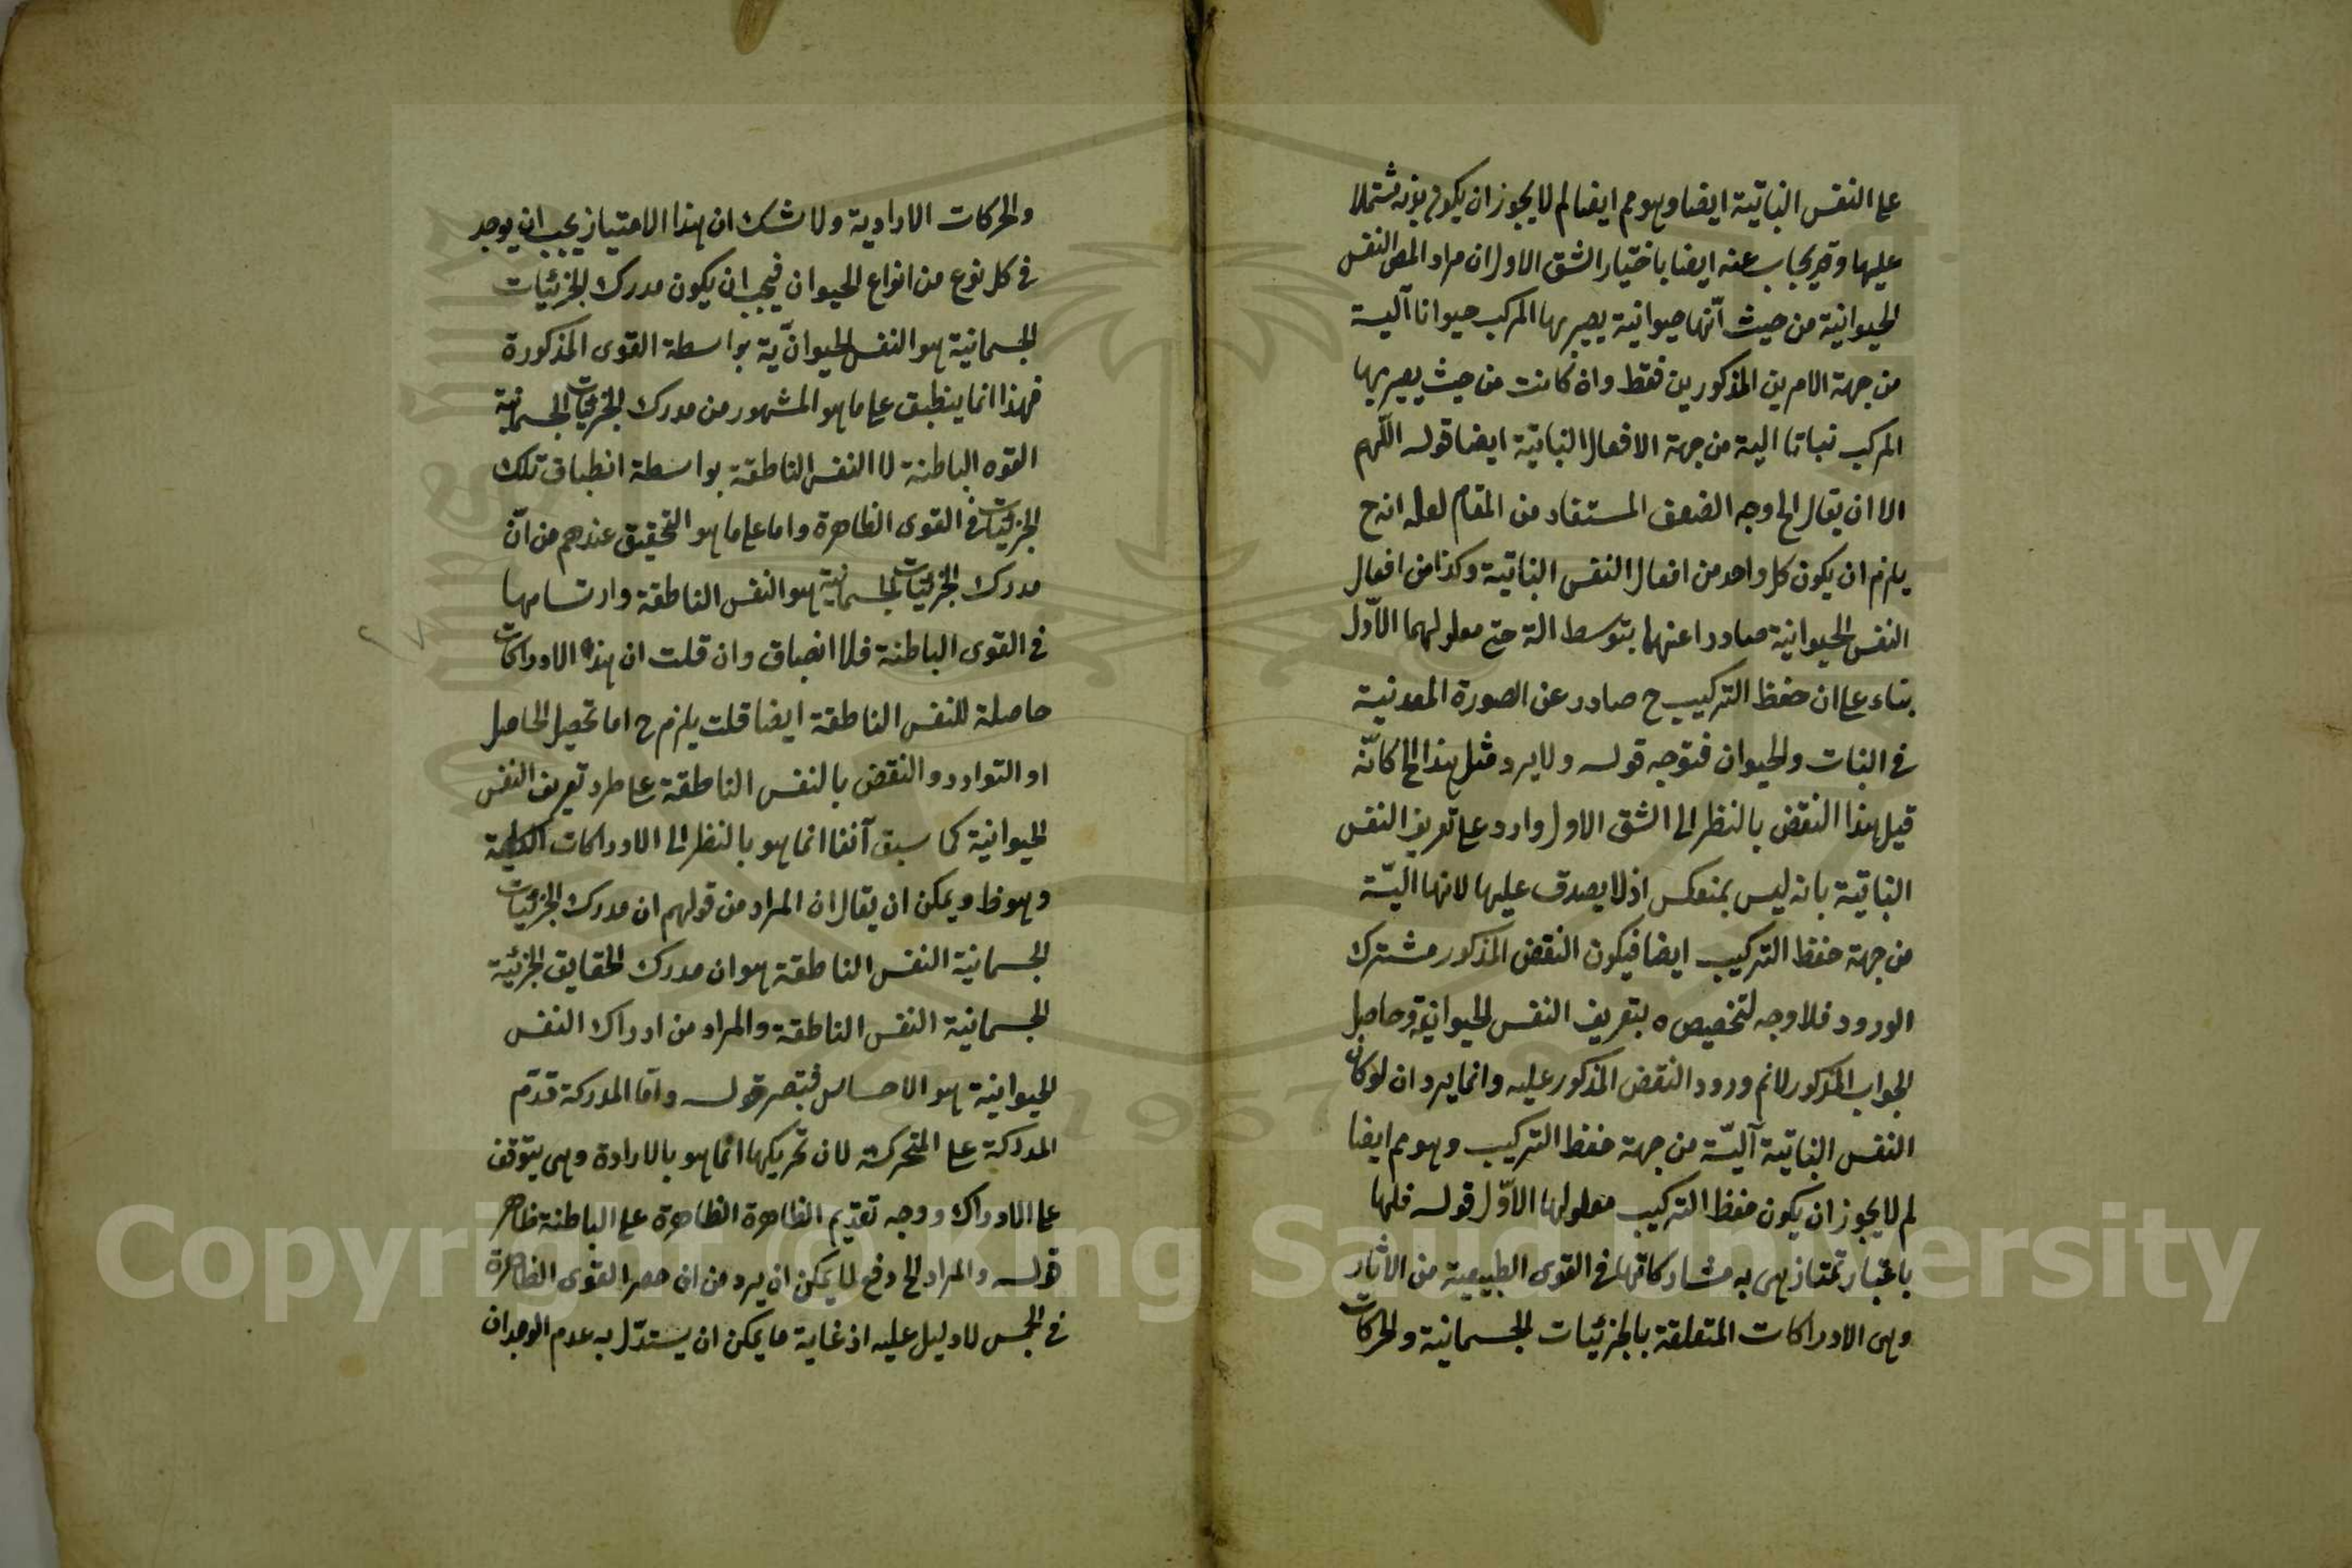 على النفس النباتية ايضا وهو مم ايضا لم لا يجوز ان يكون مشتملا
عليها وقد يجاب عنه ايضا باختيار الشق الاول ان مراد المص النفس
الحيوانية من حيث انّها حيوانية يصير بها المركب حيوانا آلية
من جهة الامرين المذكورين فقط وان كانت من حيث يصير بها
المركب نباتا الية من جهة الافعال النباتية ايضا قوله اللّهم
الا ان يقال الخ وجه الضعف المستفاد من المقام لعله انه ح
يلزم ان يكون كل واحد من افعال النفس النباتية وكذا من افعال
النفس الحيوانية صادرا عنهما بتوسط الة حتى معلولهما الاوّل
بناء على ان حفظ التركيب ح صادر عن الصورة المعدنية
في النبات والحيوان فتوجه قوله ولا يرد مثل هذا الخ كانّه
قيل هذا النقض بالنظر الى الشق الاول وارد على تعريف النفس
النباتية بانه ليس بمنعكس اذ لا يصدق عليها لانها اليّة
من جهة حفظ التركيب ايضا فيكون النقض المذكور مشترك
الورود فلا وجه لتخصيصه بتعريف النفس الحيوانية وحاصل
الجواب المذكور لانم ورود النقض المذكور عليه وانما يرد ان لو كان
النفس النباتية آليّة من جهة حفظ التركيب وهو مم ايضا
لم لا يجوز ان يكون حفظ التركيب معلولها الاوّل قوله فلها
باعتبار تمتاز هى به مشاركاتها في القوى الطبيعية من الاثار
وهى الادراكات المتعلقة بالجزئيات الجسمانية والحركات
والحركات الارادية ولا شك ان هذا الامتياز يجب ان يوجد
في كل نوع من انواع الحيوان فيجب ان يكون مدرك الجزئيات
الجسمانية هو النفس الحيوانّية بواسطة القوى المذكورة
فهذا انما ينطبق على ما هو المشهور من مدرك الجزئيات الجسمانية
القوه الباطنة لا النفس الناطقة بواسطة انطباق تلك
الجزئيات في القوى الظاهرة واما على ما هو التحقيق عندهم من انّ
مدرك الجزئيات الجسمانية هو النفس الناطقة وارتسامها
في القوى الباطنة فلا انصباق وان قلت ان هذه الادراكات
حاصلة للنفس الناطقة ايضا قلت يلزم ح اما تحصيل الحاصل
او التوارد والنقض بالنفس الناطقة على طرد تعريف النفس
الحيوانية كما سبق آنفا انما هو بالنظر الى الادراكات الكلية
وهو ظ ويمكن ان يقال ان المراد من قولهم ان مدرك الجزئيات
الجسمانية النفس الناطقة هو ان مدرك الحقايق الجزئية
الجسمانية النفس الناطقة والمراد من ادراك النفس
الحيوانية هو الاحساس فتبصر قوله وامّا المدركة قدّم
المدركة على المتحركة لان تحريكها انما هو بالارادة وهى يتوقف
على الادراك ووجه تقديم الظاهرة الظاهرة على الباطنة ظاهر
قوله والمراد الخ دفع لما يمكن ان يرد من ان حصر القوى الظاهرة
في الخمس لا دليل عليه اذ غاية ما يمكن ان يستدّل به عدم الوجدان
1957
Copyright © King Saud University